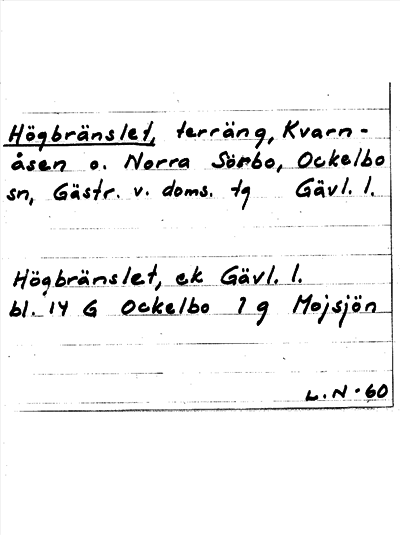 Högbränslet, terräng, Kvarn-
åsen o. Norra Sörbo, Ockelbo
sn, Gästr. v. doms. tg Gävl. l.
Högbränslet, ek Gävl. l.
bl. 14 G Ockelbo 7 g Mojsjön
L.N-60